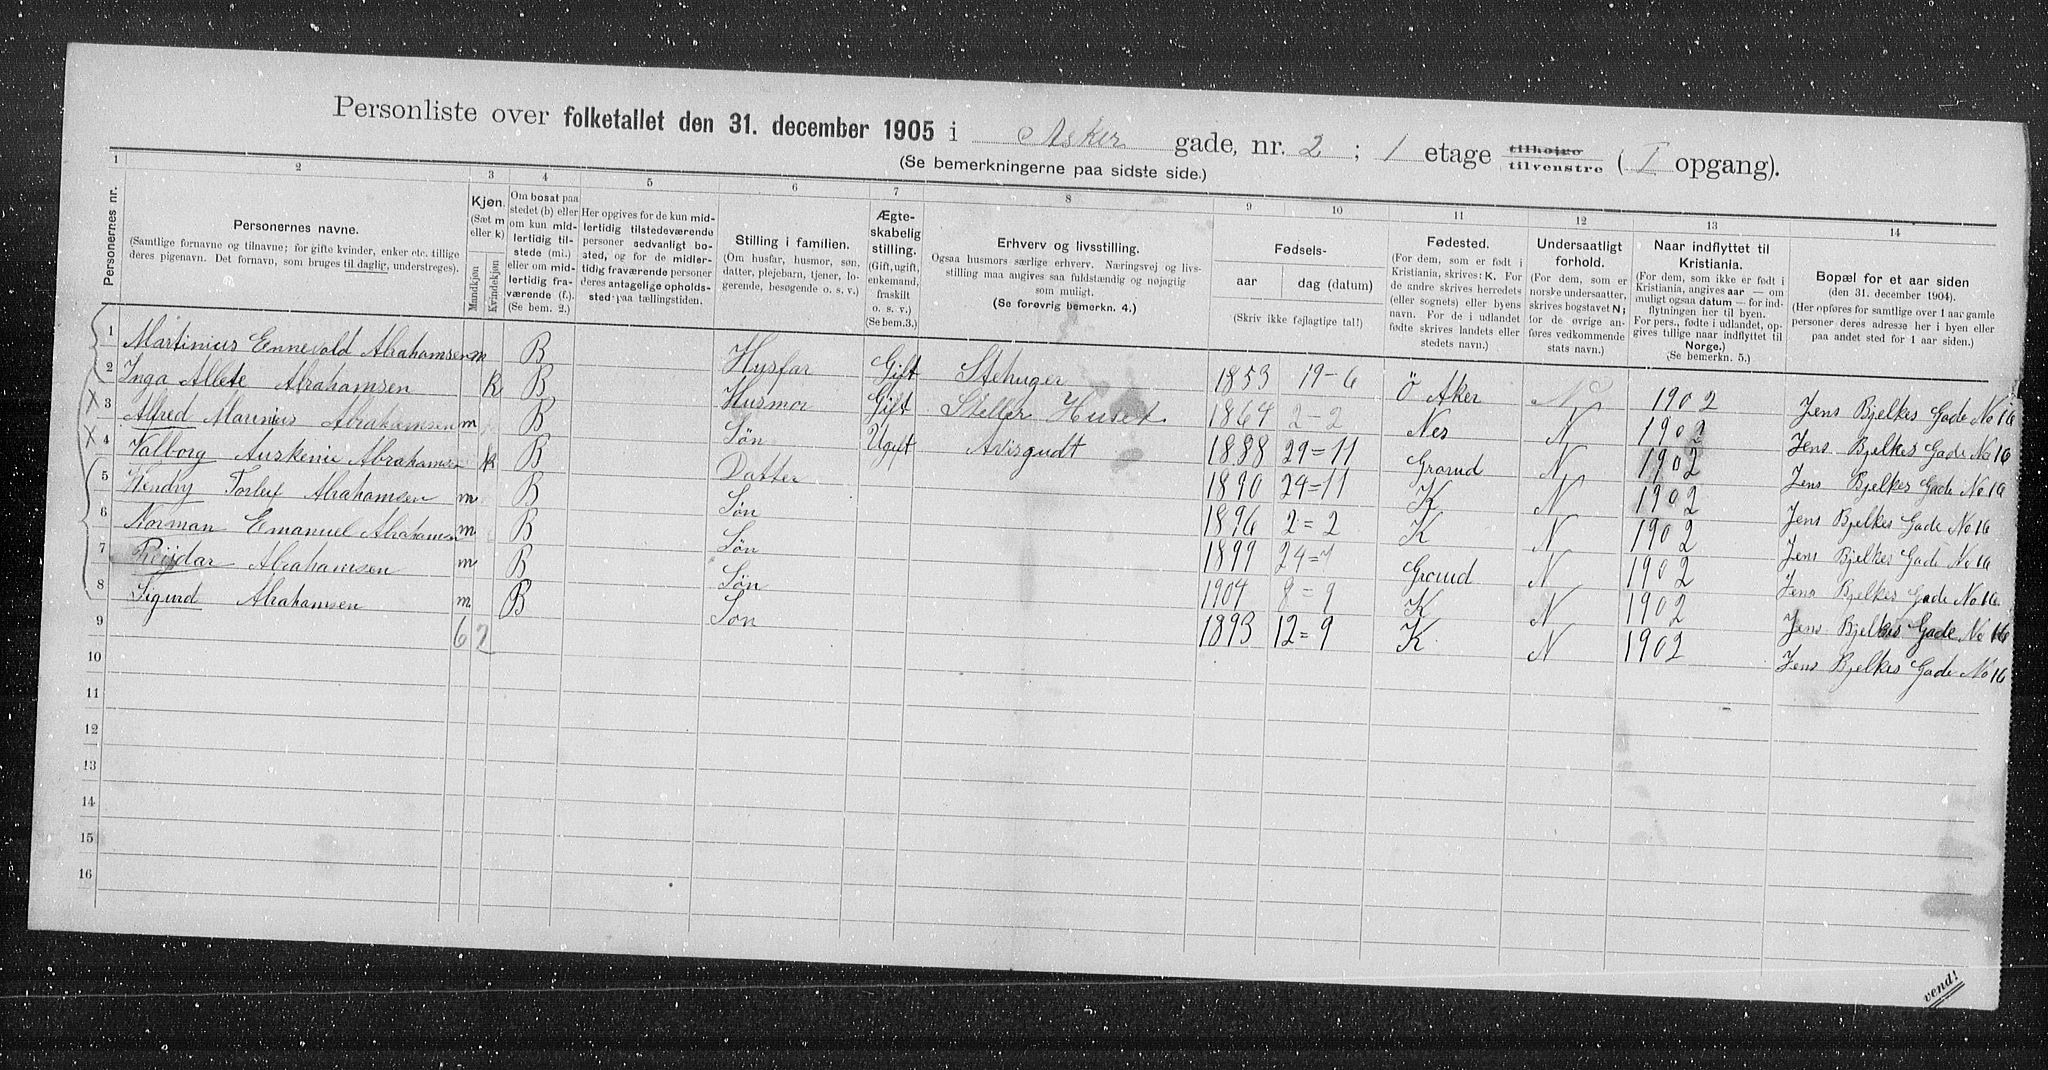 Personliste over folketallet den 31. december 1905 i Asker gade, nr. 2 ; 1 etage tilhøire tilvenstre ( I opgang).
(Se bemerkningerne paa sidste side.)
1 2 3 4 5 6 7 8 9 10 11 12 13 14
Personernes nr.
Personernes navne.
(Samtlige fornavne og tilnavne; for gifte kvinder, enker etc. tillige
deres pigenavn. Det fornavn, som bruges til daglig, understreges).
Kjøn.
(Sæt m
eller k)
Mandkjøn
Kvindekjøn
Om bosat paa
stedet (b) eller
om kun mid-
lertidig til-
stede (mi.)
eller om mid-
lertidig fra-
værende (f.).
(Se bem. 2.)
Her opgives for de kun mid-
lertidig tilstedeværende
personer sedvanlig bo-
sted, og for de midler-
tidig fraværende personer
deres antagelige opholds-
sted paa tællingstiden.
Stilling i familien.
(Om husfar, husmor, søn,
datter, plejebarn, tjener, lo-
gerende, besøgende o. s. v.)
Ægte-
skabelig
stilling.
(Gift, ugift,
enkemand,
fraskilt
o. s. v.)
(Se bem.3.)
Erhverv og livsstilling.
Ogsaa husmors særlige erhverv. Næringsvej og livs-
stilling maa angives saa fuldstændig og nøjagtig
som muligt.
(Se forøvrig bemerkn. 4.)
Fødsels-
aar dag (datum)
(Skriv ikke fejlagtige tal!)
Fødested.
(For dem, som er født i
Kristiania, skrives: K. For
de andre skrives herredets
(eller sognets) eller byens
navn. For de i udlandet
fødte skrives landets eller
stedets navn.)
Undersaatligt
forhold.
(For dem, som er
norske undersaatter,
skrives bogstavet N;
for de øvrige an-
føres vedkommende
stats navn).
Naar indflyttet til
Kristiania.
(For dem, som ikke er født i
Kristiania, angives aar — om
muligt ogsaa datum — for ind-
flytningen her til byen.
For pers., fødte i udlandet, op-
gives tillige naar indflyttet til
Norge.)
(Se bemerkn. 5.)
Bopæl for et aar siden
(den 31. december 1904).
(Her opføres for samtlige over 1 aar gamle
personer deres adresse her i byen eller
paa andet sted for 1 aar siden.)
1 Martinius Ennevold Abrahamsen m B Husfar Gift Stehuger 1853 19-6 Ö Aker N 1902 Jens Bjelkes Gade No 16
2 Inga Allete Abrahamsen k B Husmor Gift Steller Huset 1864 2-2 Nes N 1902 Jens Bjelkes Gade No 16
X 3 Alfred Marinius Abrahamsen m B Søn Ugift Avisgudt 1888 29=11 Grorud N 1902 Jens Bjelkes Gade No 16
X 4 Valborg Abrahamsen k B Datter 1890 24=11 K N 1902 Jens Bjelkes Gade No 16
5 Hendry Torleif Abrahamsen m B Søn 1896 2=2 K N 1902 Jens Bjelkes Gade No 16
6 Norman Emanuel Abrahamsen m B Søn 1899 24=7 Grorud N 1902 Jens Bjelkes Gade No 16
7 Reijdar Abrahamsen m B Søn 1904 8=9 K N 1902 Jens Bjelkes Gade No 16
8 Sigurd Abrahamsen m B Søn 1893 12=9 K N 1902 Jens Bjelkes Gade No 16
9 6 2
10
11
12
13
14
15
16
vend!